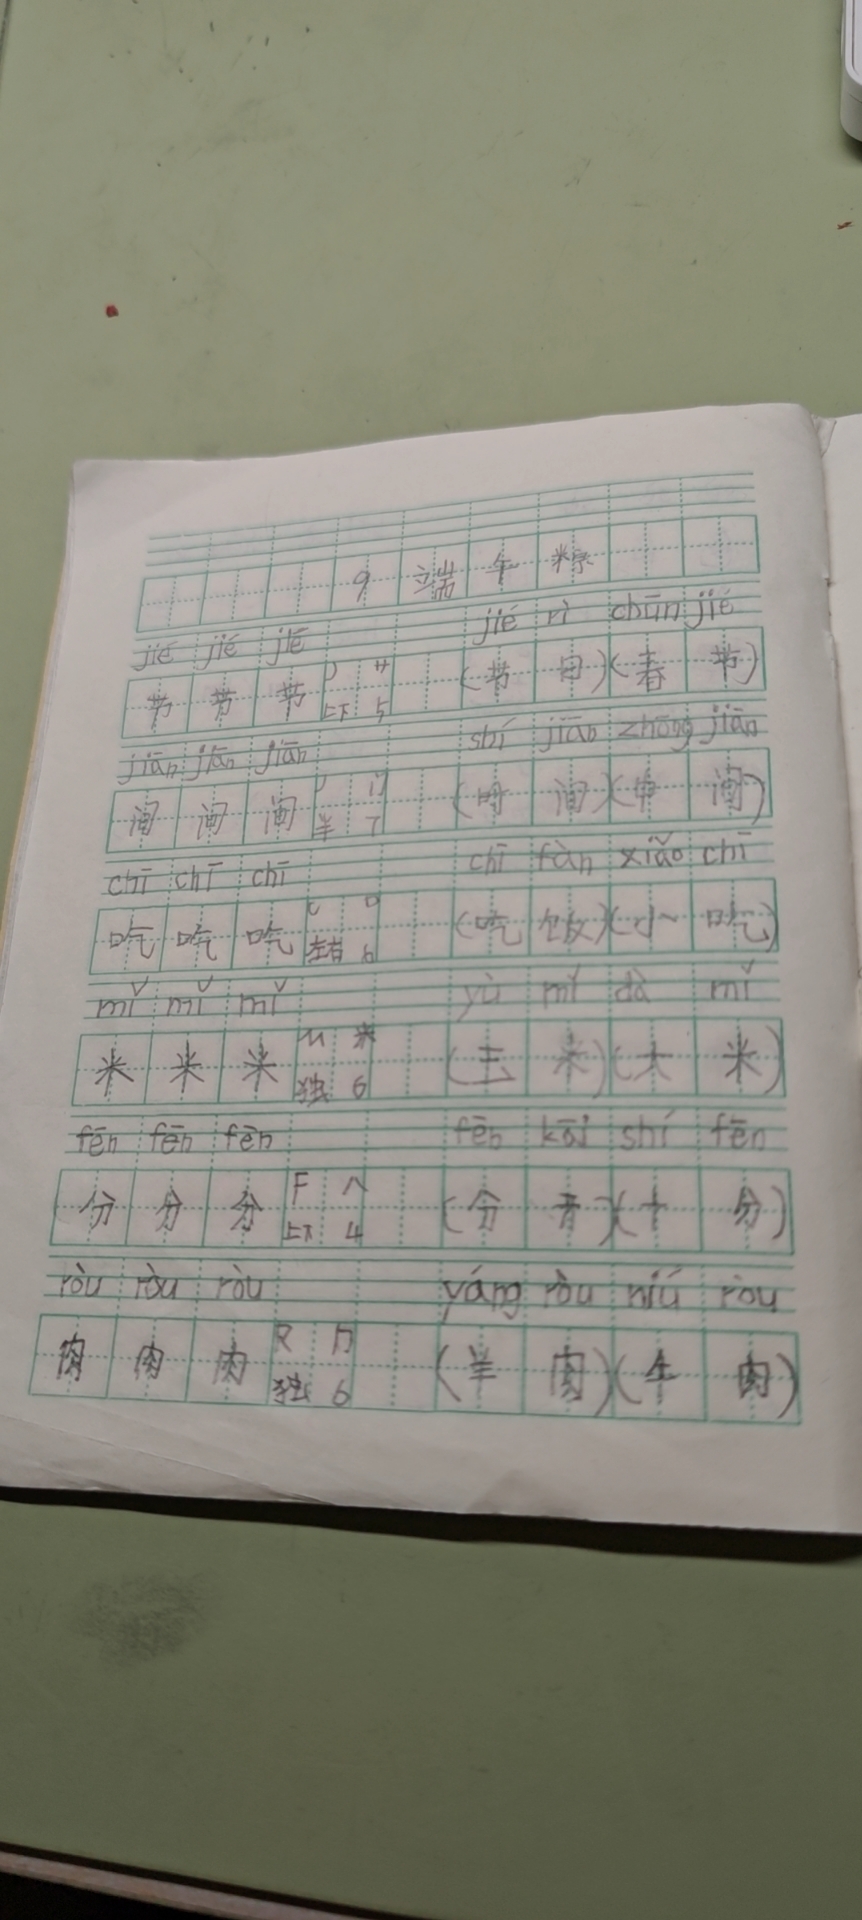 9 端午粽
jié jié jié jié rì chūn jié
节 节 节 J 艹 上下 5 (节 日)(春 节)
jiān jiān jiān shí jiān zhōng jiān
间 间 间 J 门 半 7 (时 间)(中 间)
chī chī chī chī fàn xiǎo chī
吃 吃 吃 C 口 左右 6 (吃 饭)(小 吃)
mǐ mǐ mǐ yù mǐ dà mǐ
米 米 米 M 米 独 6 (玉 米)(大 米)
fēn fēn fēn fēn kāi shí fēn
分 分 分 F 八 上下 4 (分 开)(十 分)
ròu ròu ròu yáng ròu niú ròu
肉 肉 肉 R 冂 独 6 (羊 肉)(牛 肉)